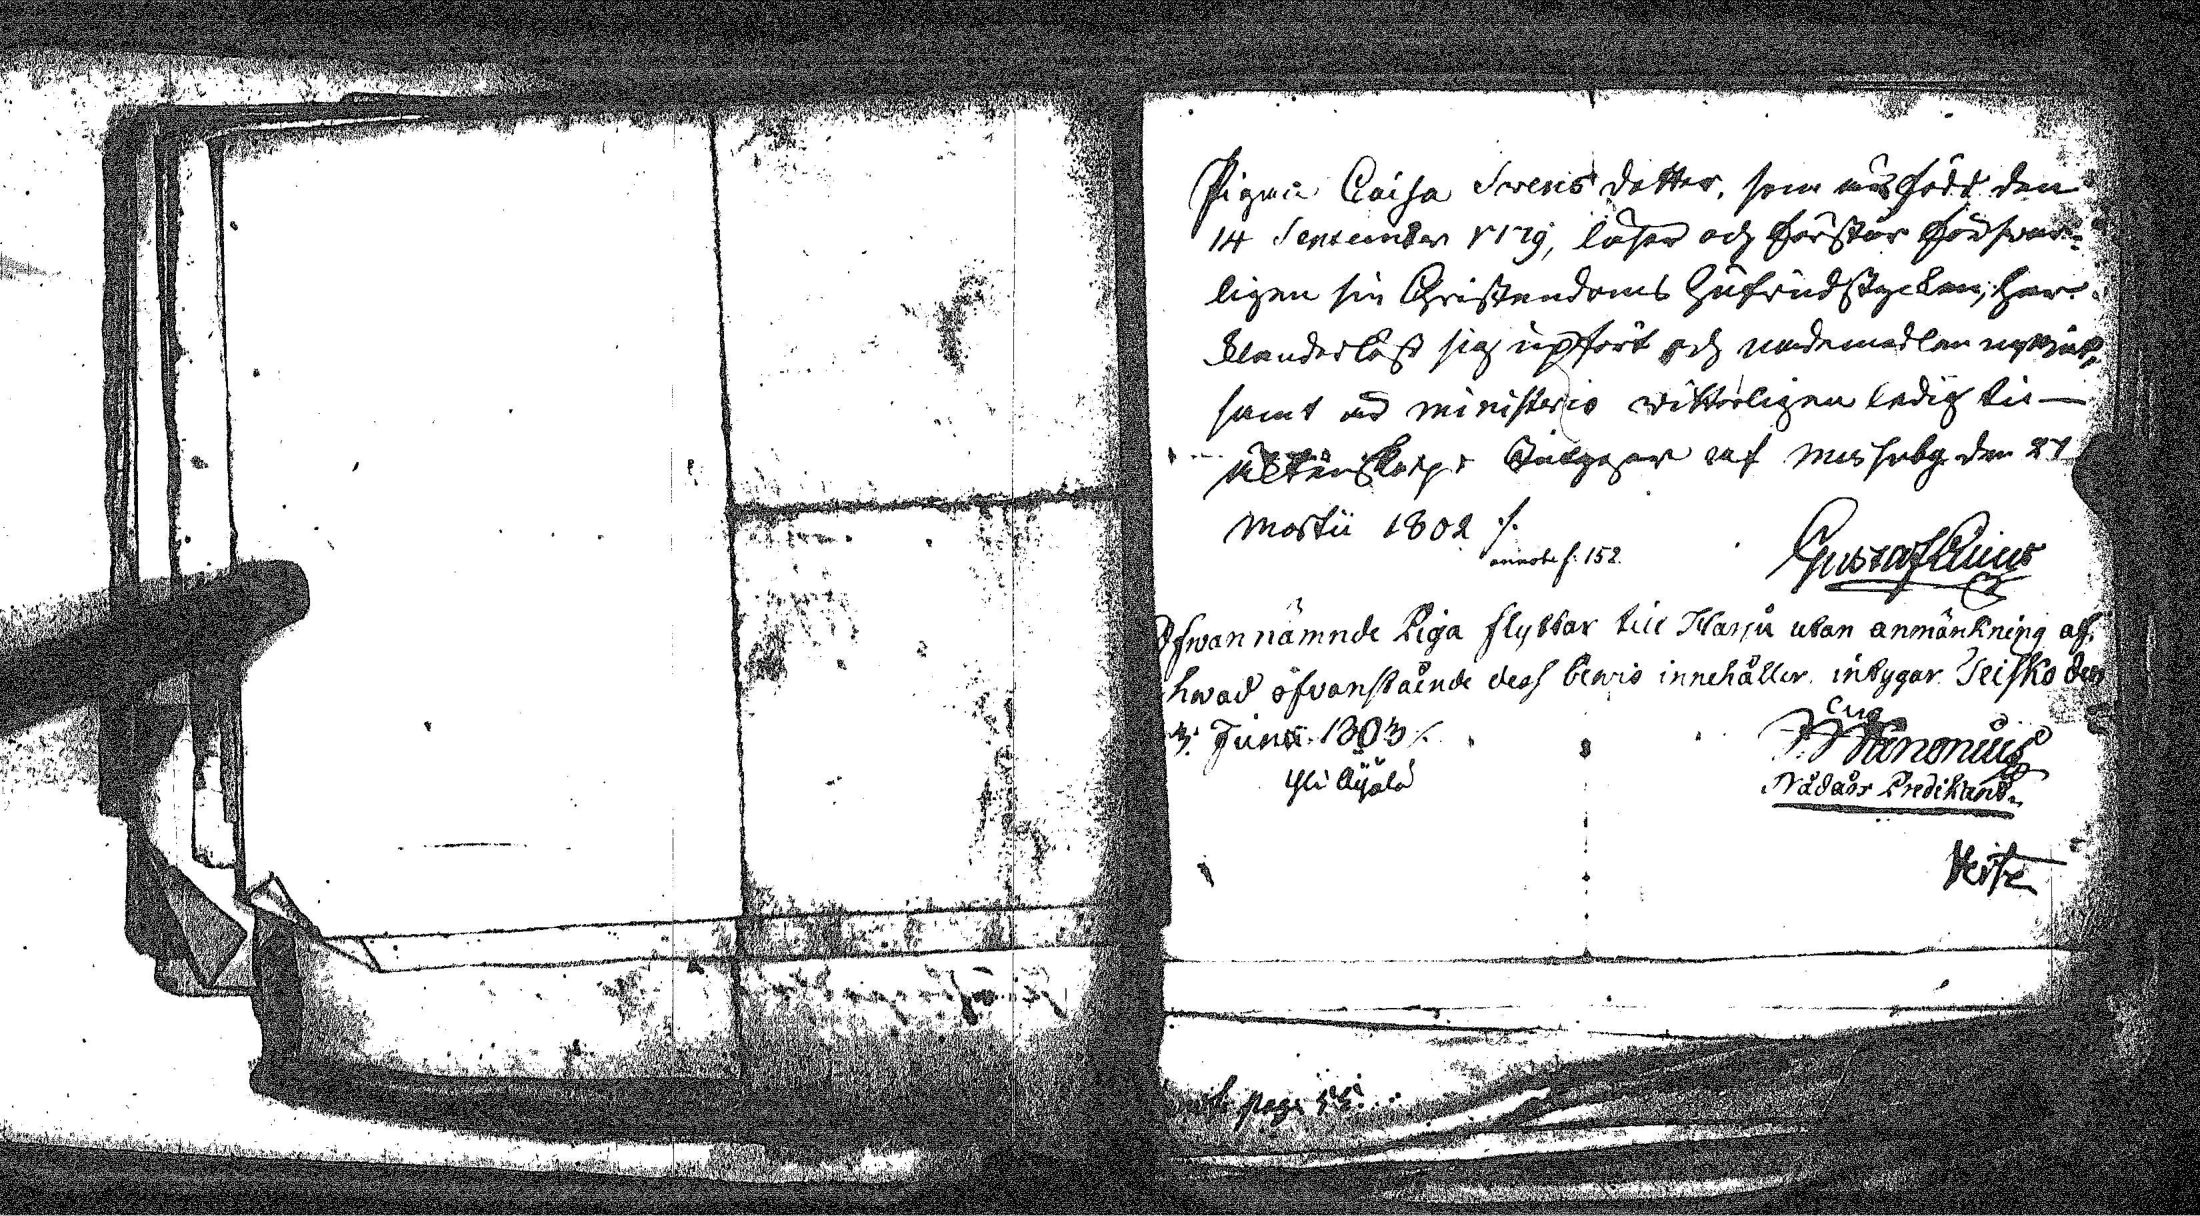 Pigan Caisa Svens dotter, som är född den
14 September 1779, läser och förstår försvar-
ligen sin Christendoms hufvudstycken, har
klanderlöst sig upfört och
samt ad ministerio vitterligen ledig til
äktenskap; Intygar af den 27
Martii 1802 ./.
annote f. 152.
Gustaf
Ofwannämnde Piga flyttar till Harju utan anmänkning af
hwad ofvanstående dess bewis innehåller, intygar Teisko den
3. Junii 1803 /.
Yli Äijälä
Nådårs Predikant
page